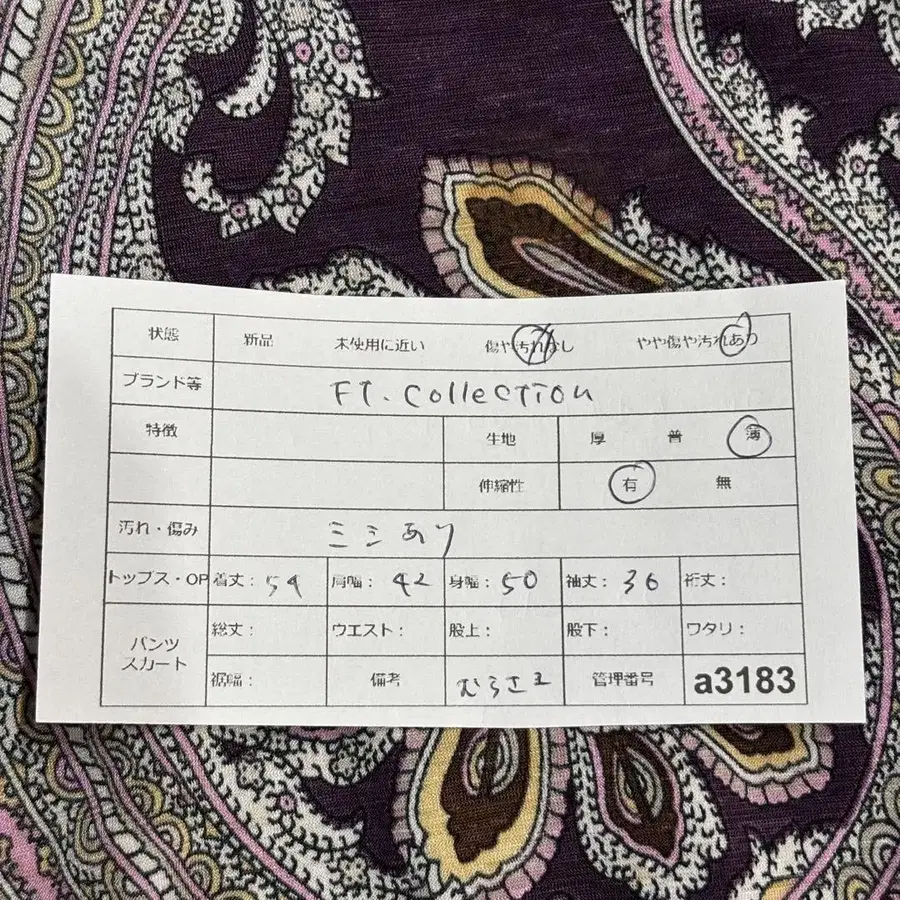 状態 新品 未使用に近い 傷や汚れなし やや傷や汚れあり
ブランド等 FT. Collection
特徴 生地 厚 普 薄
伸縮性 有 無
汚れ・傷み シミあり
トップス・OP 着丈: 59 肩幅: 42 身幅: 50 袖丈: 36 裄丈:
パンツ スカート 総丈: ウエスト: 股上: 股下: ワタリ:
裾幅: 備考 むらさき 管理番号 a3183